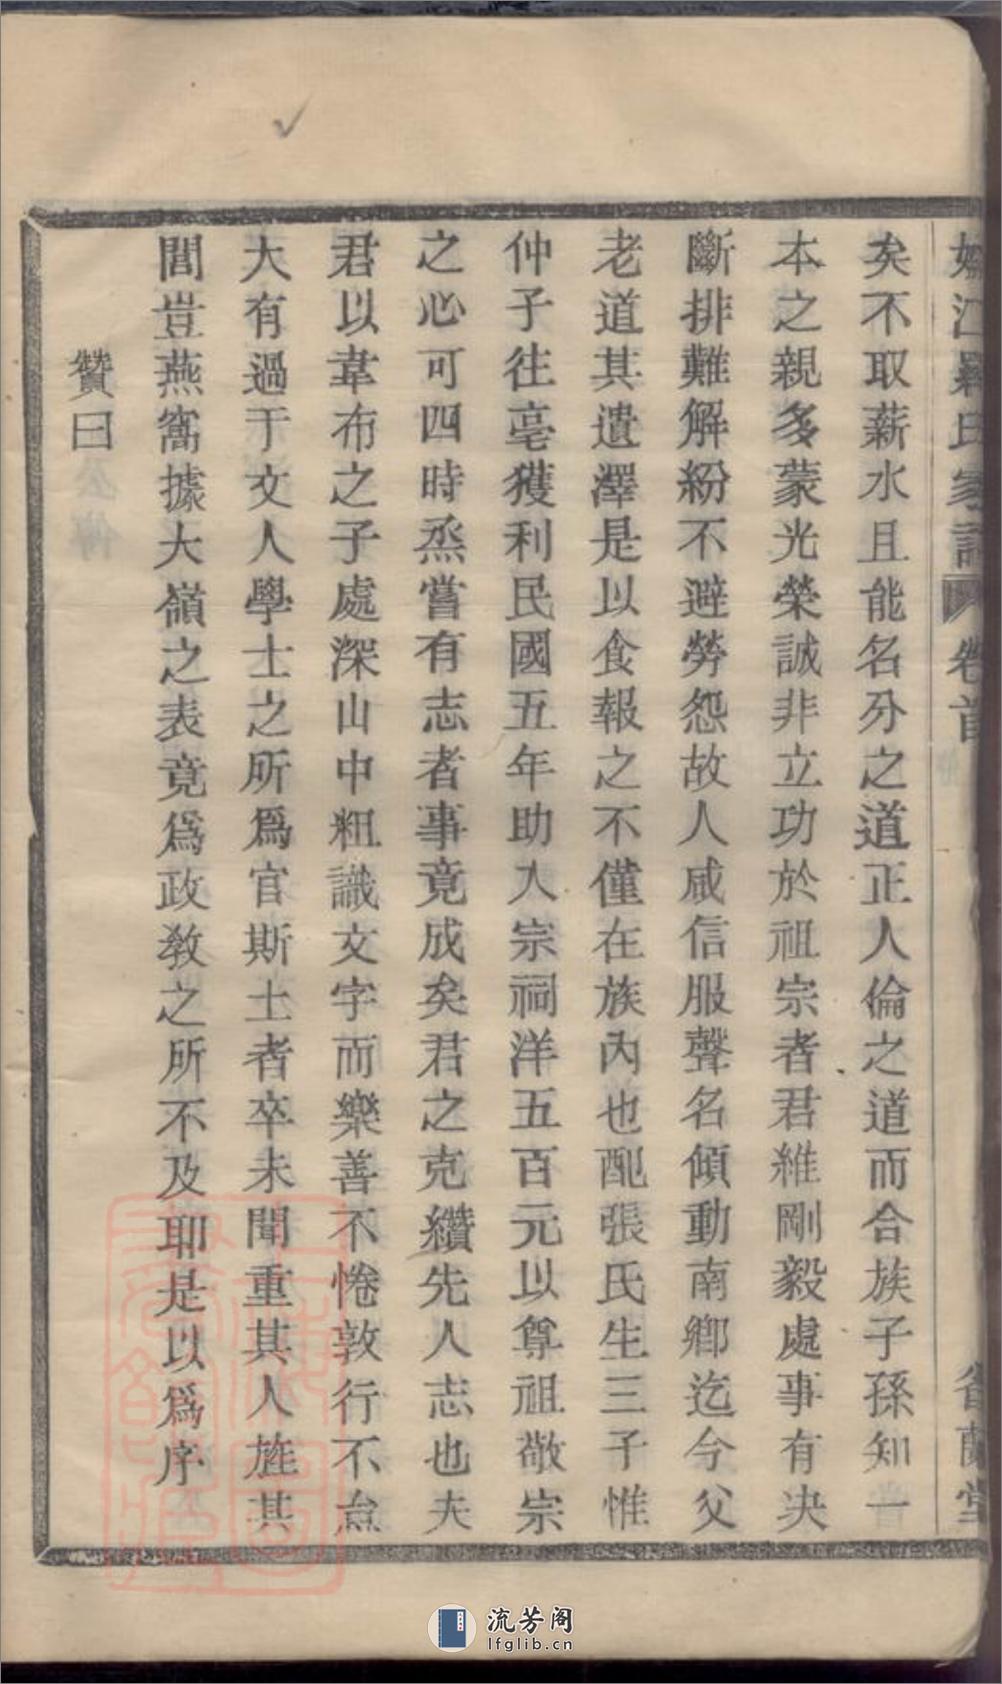 江羅氏家譜 卷首
矣不取薪水且能名分之道正人倫之道而合族子孫知一
本之親多蒙光榮誠非立功於祖宗者君維剛毅處事有决
斷排難解紛不避勞怨故人咸信服聲名傾動南鄉迄今父
老道其遺澤是以食報之不僅在族內也配張氏生三子惟
仲子往亳獲利民國五年助入宗祠洋五百元以尊祖敬宗
之心可四時烝嘗有志者事竟成矣君之克纘先人志也夫
君以韋布之子處深山中粗識文字而樂善不惓敦行不怠
大有過于文人學士之所爲官斯土者卒未聞重其人旌其
閭豈燕窩據大嶺之表竟爲政教之所不及耶是以爲序
贊曰
流芳阁
lfglib.cn